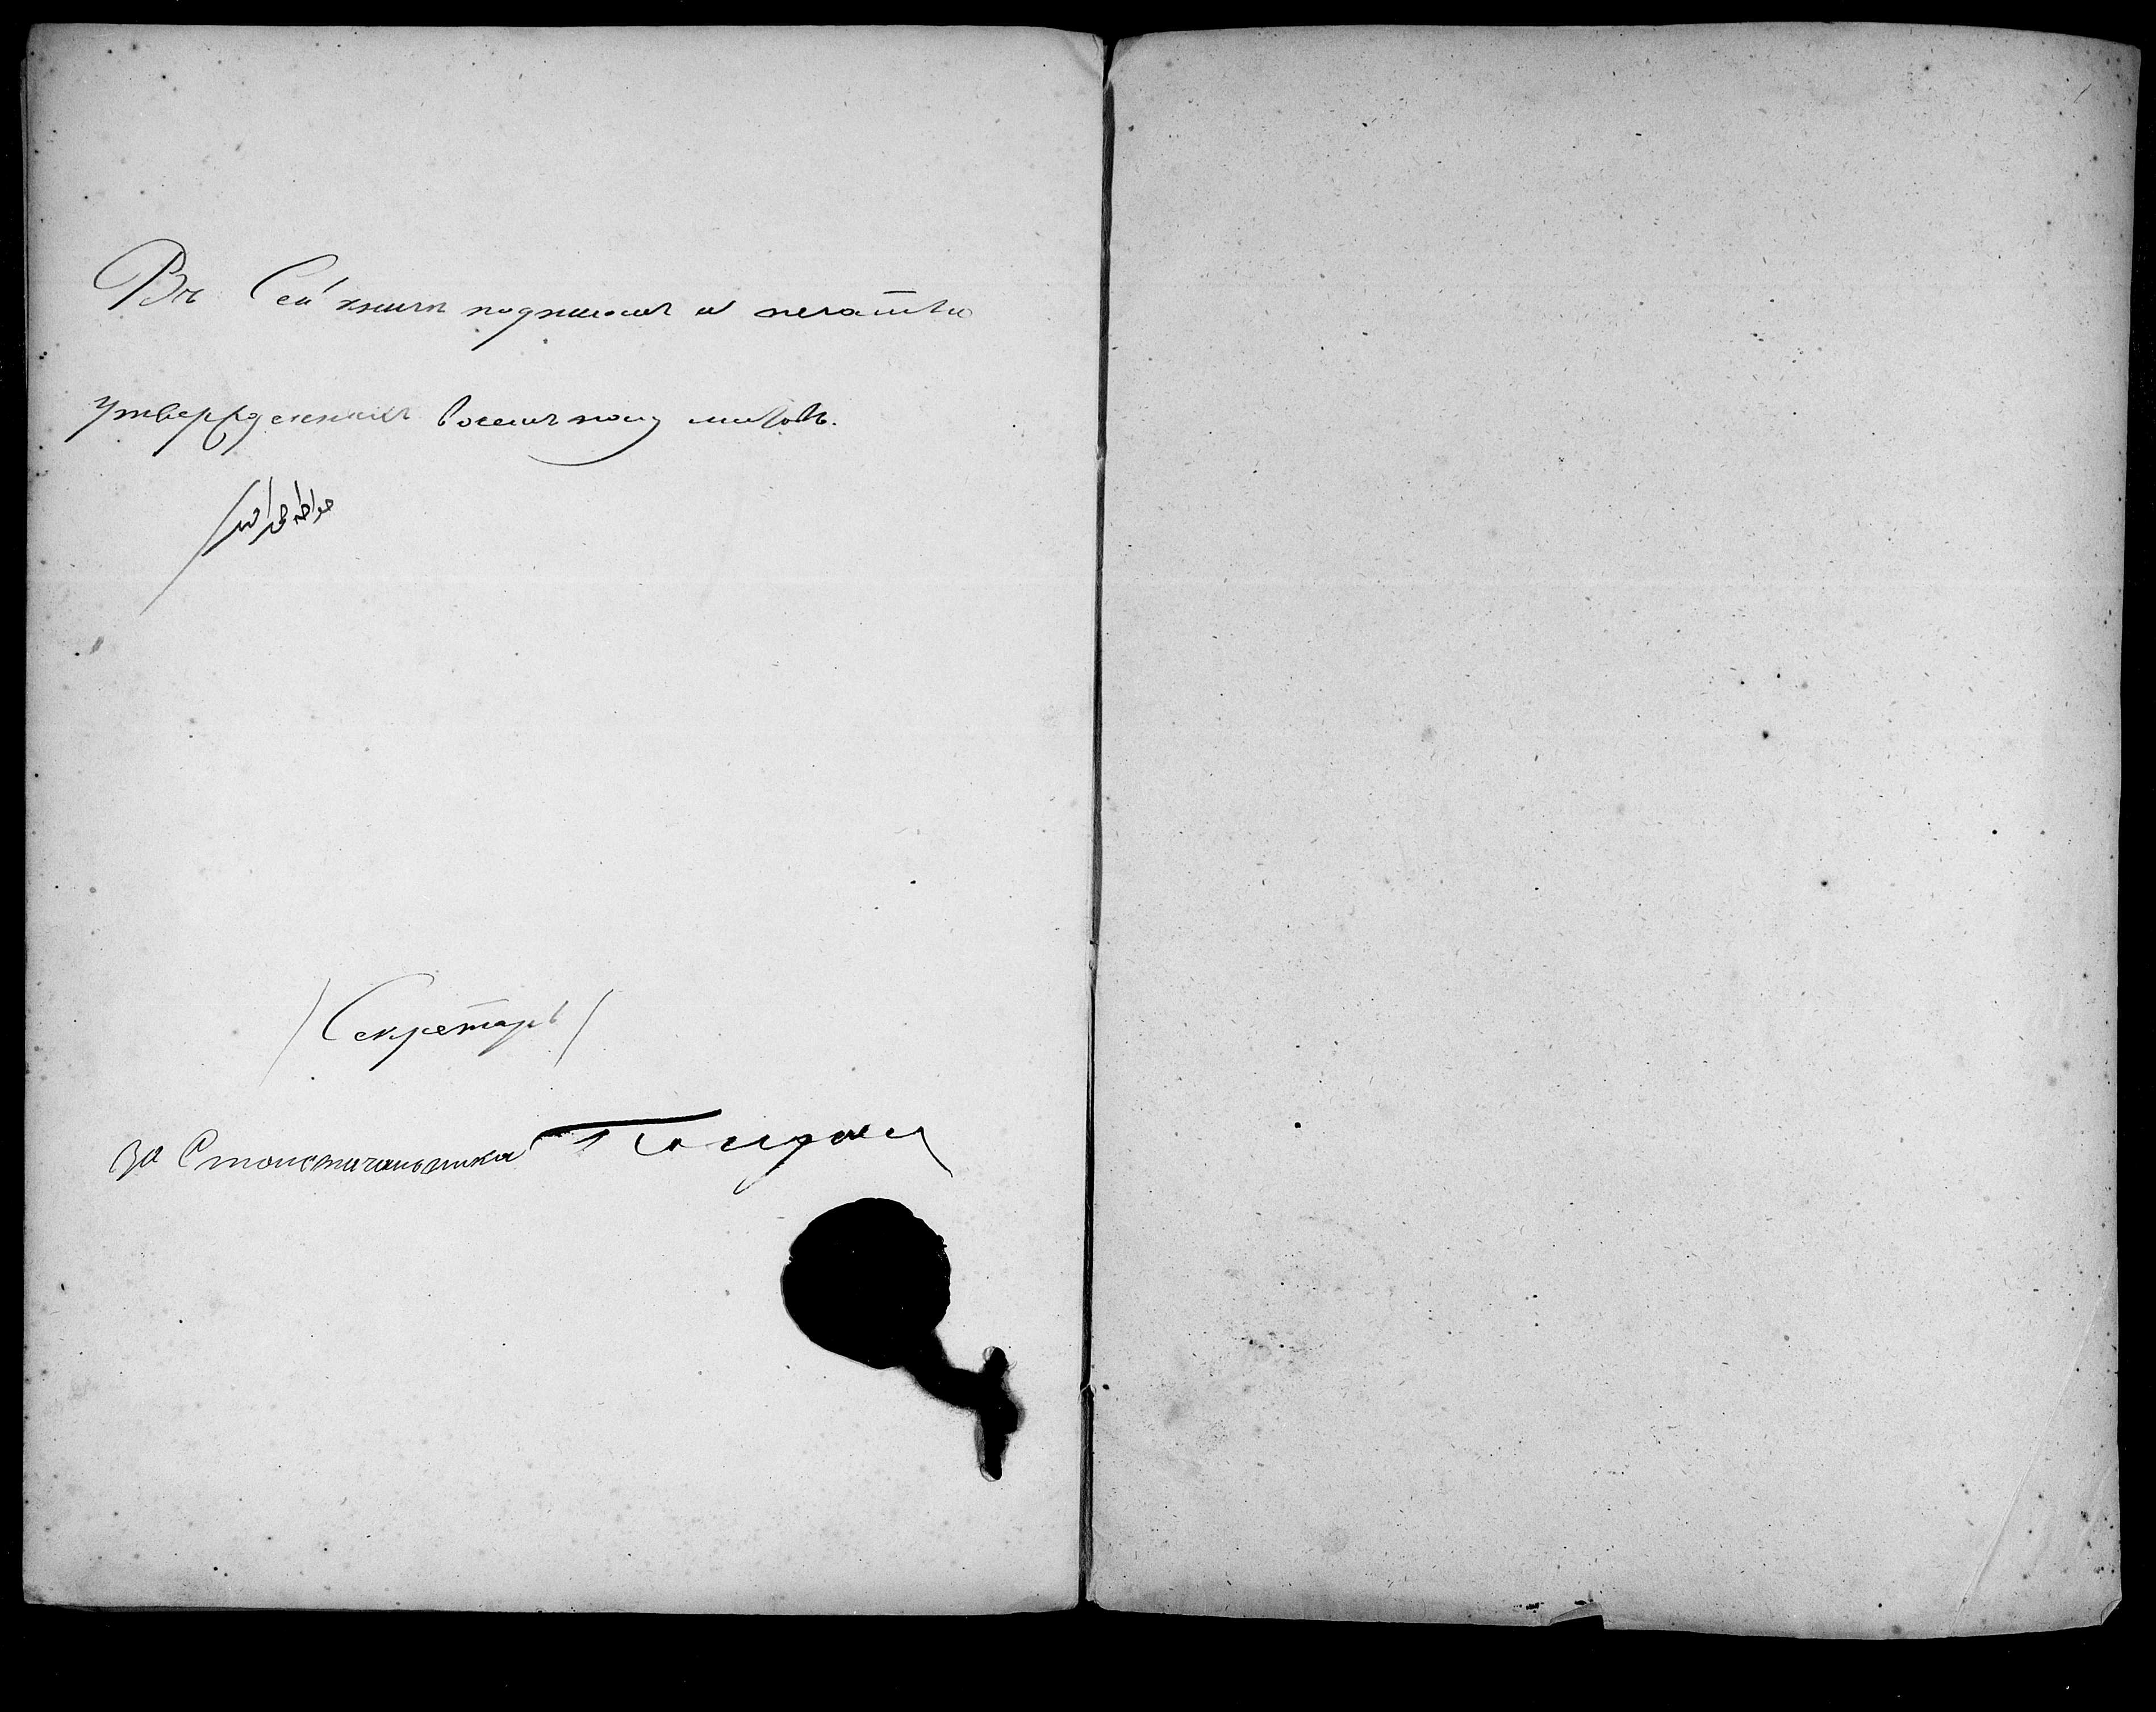 Въ Сей книгѣ подписомъ и печатью
утвержденныхъ восемь полу листовъ.
/Секретарь/
За Столоначальника